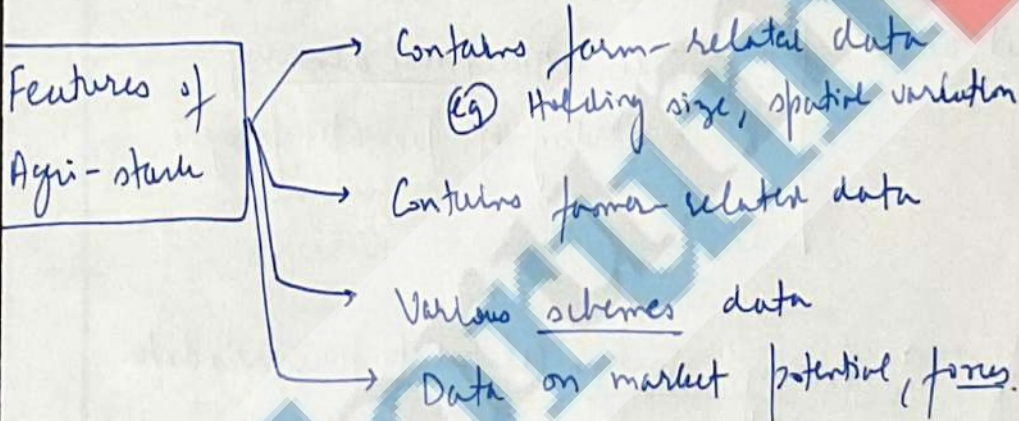 Features of
Agri-stack
Contains farm-related data
eg Holding size, spatial variation
Contains farmer related data
Various schemes data
Data on market potential, forces.